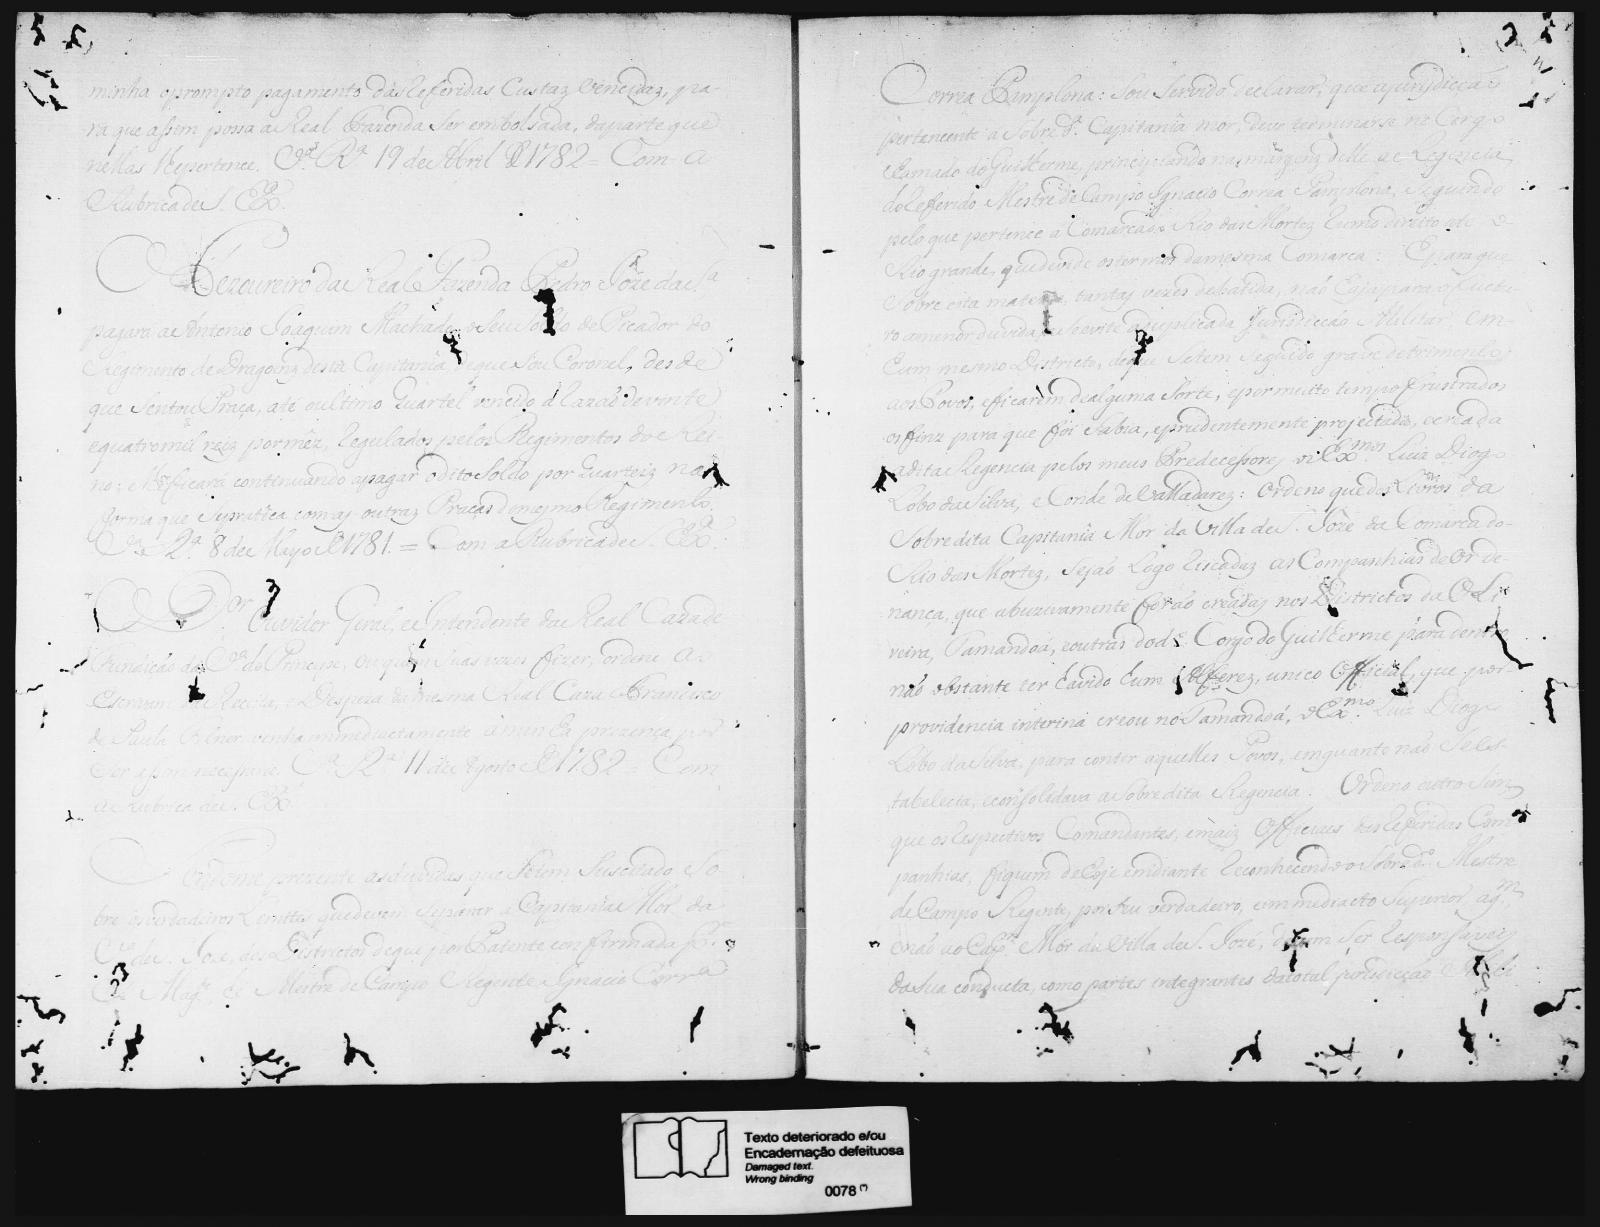 minha oprompto pagamento das Referidas Custaz vencidaz, pa-
ra que assim possa a Real Fazenda ser embolsada, daparte que
nellas lhe pertence. V.ª R.ª 19 de Abril D 1782 = Com a
Rubrica de S. Ex.ª
Thezoureiro da Real Fazenda Pedro Joze da S.ª
pagará a Antonio Joaquim Machado o seu Soldo de Picador do
Regimento de Dragoenz desta Capitania, de que Sou Coronel, desde
que Sentou Praça, até o ultimo Quartel vencido á Razaõ de vinte
equatromil reiz por mêz, Regulados pelos Regimentos do Rei-
no; e ficará continuando apagar o dito Soldo por Quarteiz na
forma que Sepratica com as outraz Praças do mesmo Regimento.
V.ª R.ª 8 de Mayo D 1781. = Com a Rubrica de S. Ex.ª
O D.or Ouvidor Geral, e Intendente da Real Caza de
Fundiçaõ da V.ª do Principe, ou quem suas vezes fizer, ordene ao
Escrivam da Receita, e Despeza da mesma Real Caza Francisco
de Paula venha immediactamente á minha prezença por
Ser assim necessario. V.ª R.ª 11 de Agosto D 1782 = Com
a Rubrica de S. Ex.ª
Sendome prezente as duvidas que Setem Suscitado So-
bre os verdadeiros Lemites quedevem Separar a Capitania Mor da
V.ª de S. Joze, dos Districtos de que por Patente confirmada p.r
S. Mag.e he Mestre de Campo Regente Ignacio Correa
Correa Pamplona: Sou Servido declarar, que ajurisdicçaõ
pertencente a Sobred.ª Capitania mor, deve terminarse no Corgo
chamado do Guilherme, principiando nas margenz delle a Regencia
do Referido Mestre de Campo Ignacio Correa Pamplona, Seguindo
pelo que pertence a Comarca do Rio das Mortez Rumo direito até o
Rio grande, que divide os termos da mesma Comarca: E para que
Sobre esta materia, tantas vezes debatida, naõ haja para o futu-
ro a menor duvida, e Se evite a duplicada Jurisdicçaõ Militar em
hum mesmo Districto, de que Setem Seguido grave detrimento
aos Povos, eficarem dealguma Sorte, epor muito tempo frustrados
os finz para que foi Sabia, eprudentemente projectada, ecreada
adita Regencia pelos meus Predecessores os Ex.mos Luiz Diogo
Lobo da Silva, e Conde de Valladarez: Ordeno que dos Livros da
Sobredita Capitania Mor da Villa de S. Joze da Comarca do
Rio das Mortez, sejaõ Logo Riscadaz as Companhias de Orde-
nança, que abuzivamente foraõ creadas nos Districtos da Oli-
veira, Tamandoa, eoutras do d.º Corgo do Guilherme para dentro
naõ obstante ter havido hum Alferez, unico Official, que por
providencia interina creou no Tamandoá, o Ex.mo Luiz Diogo
Lobo da Silva, para conter aquelles Povos, emquanto naõ Seles-
tabelecia, econsolidava a Sobredita Regencia. Ordeno outro Sim
que os Respectivos Comandantes, emaiz Officiaes das Referidas Com
panhias, fiquem de hoje emdiante Reconhecendo o Sobred.º Mestre
de Campo Regente, por Seu verdadeiro, eimmediacto Superior, aq.m
enaõ ao Cap.m Mór da Villa de S. Jozé, devem Ser Responsaveis
da Sua conducta, como partes integrantes da total jurisdicçaõ
Texto deteriorado e/ou
Encadernação defeituosa
Damaged text.
Wrong binding
0078